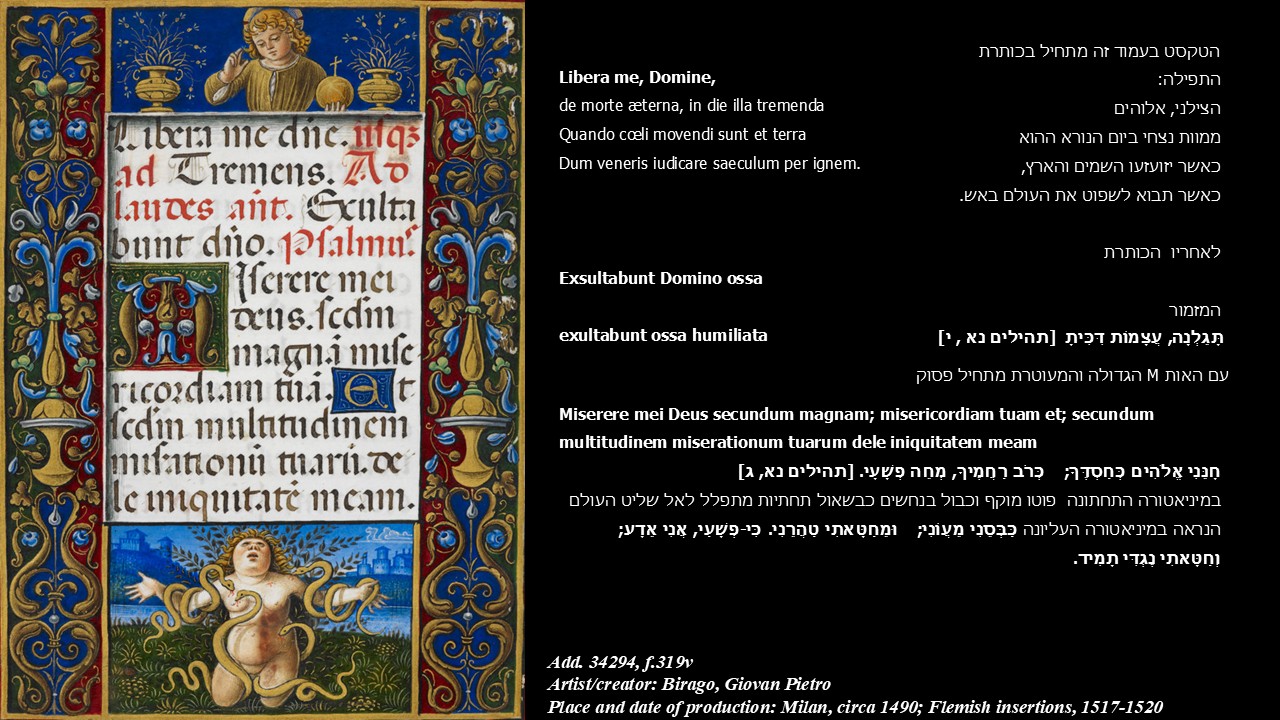 Libera me dñe. usqz
ad Tremens. Ad
laudes añt. Exulta
bunt dño. Psalmus
Miserere mei
deus. scdm
magnã mise
ricordiam tuã. Et
scdm multitudinem
misationũ tuarũ. de
le iniquitatẽ meam.
הטקסט בעמוד זה מתחיל בכותרת
התפילה:
Libera me, Domine,
הצילני, אלוהים
de morte æterna, in die illa tremenda
ממוות נצחי ביום הנורא ההוא
Quando cœli movendi sunt et terra
כאשר יזועזעו השמים והארץ,
Dum veneris iudicare saeculum per ignem.
כאשר תבוא לשפוט את העולם באש.
לאחריו הכותרת
Exsultabunt Domino ossa
המזמור
exultabunt ossa humiliata
תָּגֵלְנָה, עֲצָמוֹת דִּכִּיתָ [תהילים נא , י]
עם האות M הגדולה והמעוטרת מתחיל פסוק
Miserere mei Deus secundum magnam; misericordiam tuam et; secundum
multitudinem miserationum tuarum dele iniquitatem meam
חָנֵּנִי אֱלֹהִים כְּחַסְדֶּךָ; כְּרֹב רַחֲמֶיךָ, מְחֵה פְשָׁעָי. [תהילים נא, ג]
במיניאטורה התחתונה פוטו מוקף וכבול בנחשים כבשאול תחתיות מתפלל לאל שליט העולם
הנראה במיניאטורה העליונה כַּבְּסֵנִי מֵעֲוֺנִי; וּמֵחַטָּאתִי טַהֲרֵנִי. כִּי-פְשָׁעַי, אֲנִי אֵדָע;
וְחַטָּאתִי נֶגְדִּי תָמִיד.
Add. 34294, f.319v
Artist/creator: Birago, Giovan Pietro
Place and date of production: Milan, circa 1490; Flemish insertions, 1517-1520